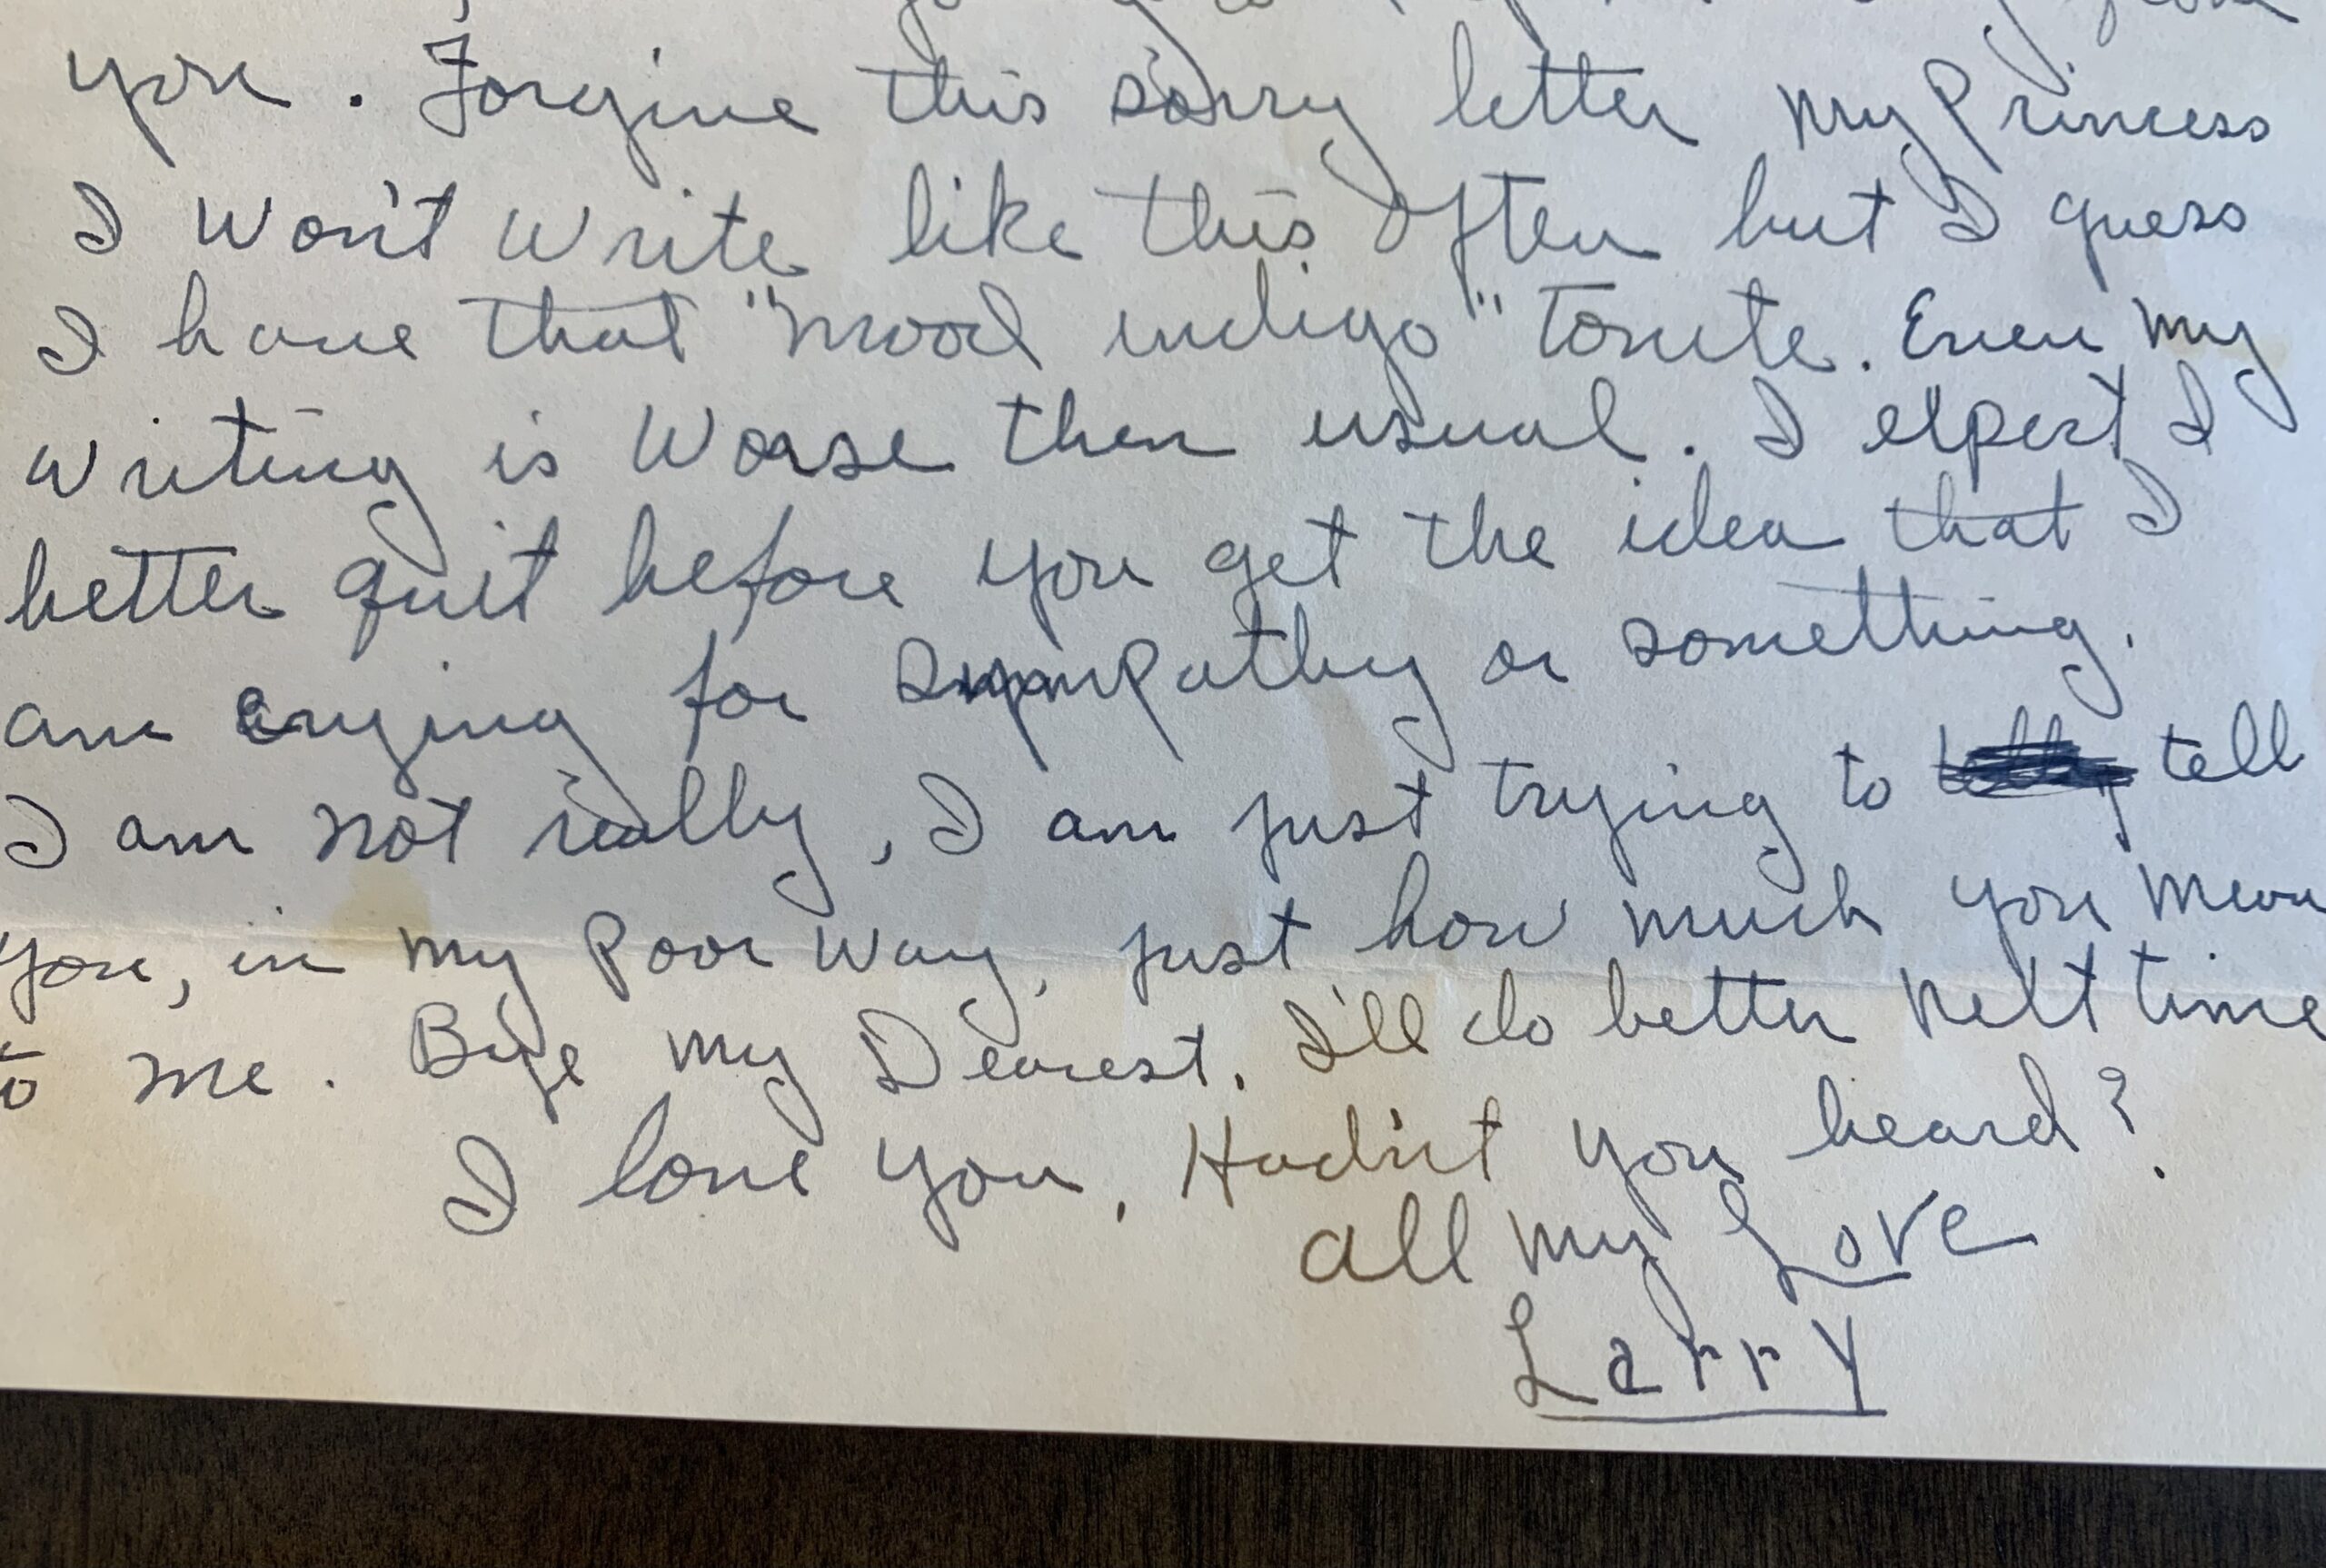 you. Forgive this sorry letter my Princess
I won't write like this often but I guess
I have that "mood indigo" tonite. Even my
writing is worse then usual. I expect I
better quit before you get the idea that I
am crying for sympathy or something.
I am not really, I am just trying to tell
you, in my poor way, just how much you mean
to me. Bye my Dearest. I'll do better next time
I love you, Hadn't you heard?
all my Love
Larry